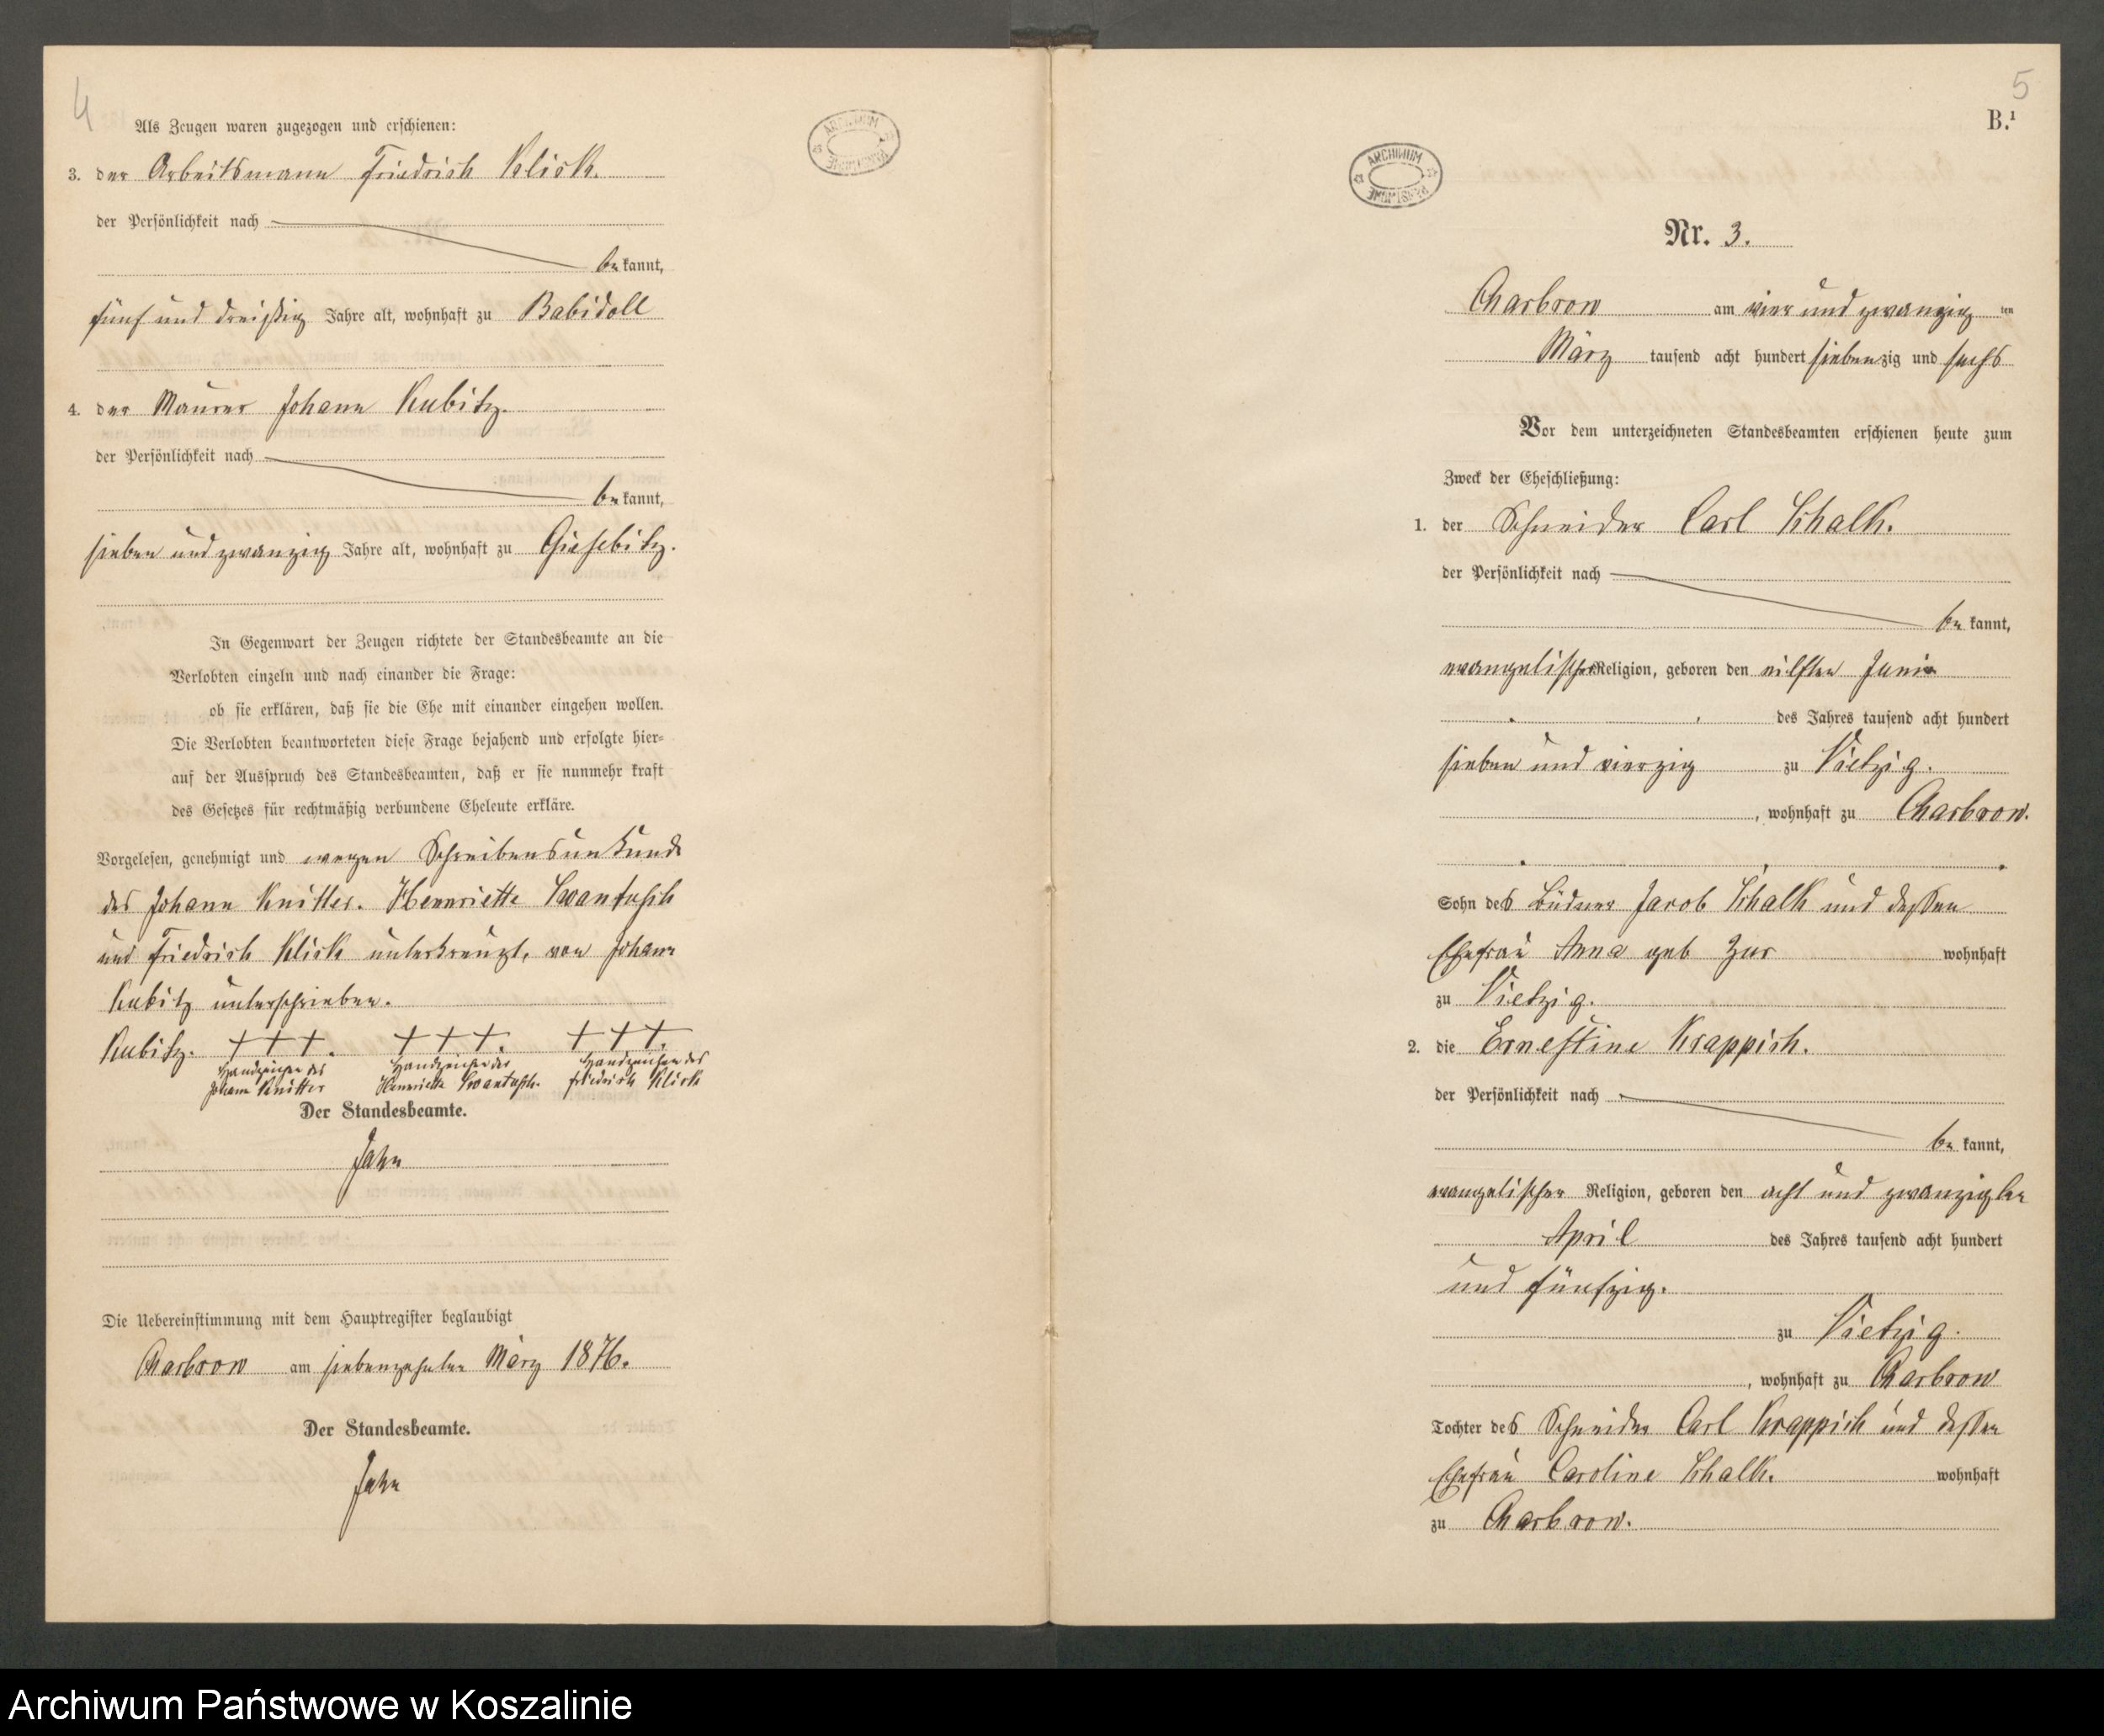 4
Als Zeugen waren zugezogen und erschienen:
3. der Arbeitsmann Friedrich Klick.
der Persönlichkeit nach
be kannt,
fünf und dreißig Jahre alt, wohnhaft zu Babidoll
4. der Maurer Johann Kubitz.
der Persönlichkeit nach
be kannt,
sieben und zwanzig Jahre alt, wohnhaft zu Giesebitz.
In Gegenwart der Zeugen richtete der Standesbeamte an die
Verlobten einzeln und nach einander die Frage:
ob sie erklären, daß sie die Ehe mit einander eingehen wollen.
Die Verlobten beantworteten diese Frage bejahend und erfolgte hier-
auf der Ausspruch des Standesbeamten, daß er sie nunmehr kraft
des Gesetzes für rechtmäßig verbundene Eheleute erkläre.
Vorgelesen, genehmigt und wegen Schreibensunkunde
des Johann Knitter. Hennriette
und Friedrich Klick unterkreuzt, von Johann
Kubitz unterschrieben.
Kubitz. +++. +++. +++.
Handzeichen des Handzeichen der Handzeichen des
Johann Knitter Hennriette Friedrich Klick
Der Standesbeamte.
Jahn
Die Uebereinstimmung mit dem Hauptregister beglaubigt
Charbrow am siebenzehnten März 1876.
Der Standesbeamte.
Jahn
ARCHIWUM PAŃSTWOWE
5
B.¹
ARCHIWUM PAŃSTWOWE
Nr. 3.
Charbrow am vier und zwanzig ten
März tausend acht hundert siebenzig und sechs
Vor dem unterzeichneten Standesbeamten erschienen heute zum
Zweck der Eheschließung:
1. der Schneider Carl Schalk.
der Persönlichkeit nach
be kannt,
evangelischer Religion, geboren den eilften Juni
des Jahres tausend acht hundert
sieben und vierzig zu Vietzig.
, wohnhaft zu Charbrow.
Sohn des Büdner Jacob Schalk und dessen
Ehefrau Anna geb Zur wohnhaft
zu Vietzig.
2. die Ernestine Krappich.
der Persönlichkeit nach
be kannt,
evangelischer Religion, geboren den acht und zwanzigten
April des Jahres tausend acht hundert
und fünfzig.
zu Vietzig.
, wohnhaft zu Charbrow
Tochter des Schneider Carl Krappich und dessen
Ehefrau Caroline Schalk. wohnhaft
zu Charbrow.
Archiwum Państwowe w Koszalinie